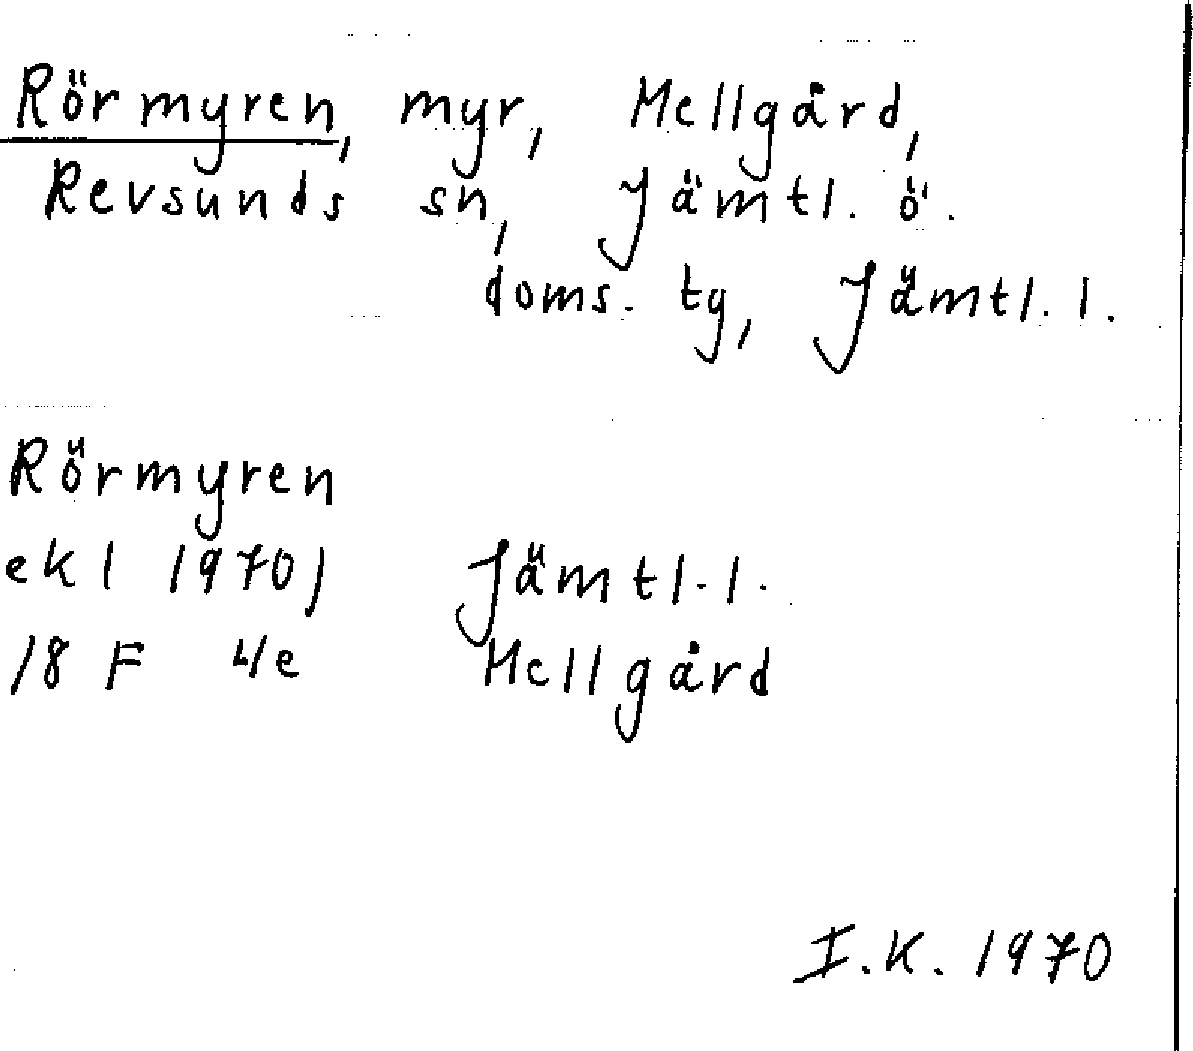 Rörmyren, myr, Mellgård,
Revsunds sn, Jämtl. ö.
doms. tg, Jämtl. l.
Rörmyren
ekl 1970)
Jämtl. l.
18 F 4e
Mellgård
I.K. 1970